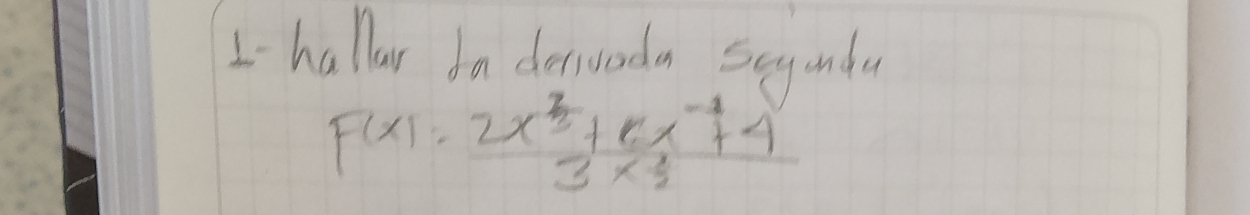 1- hallar la derivada segunda
F(x) = 2x + x + 4
3 x